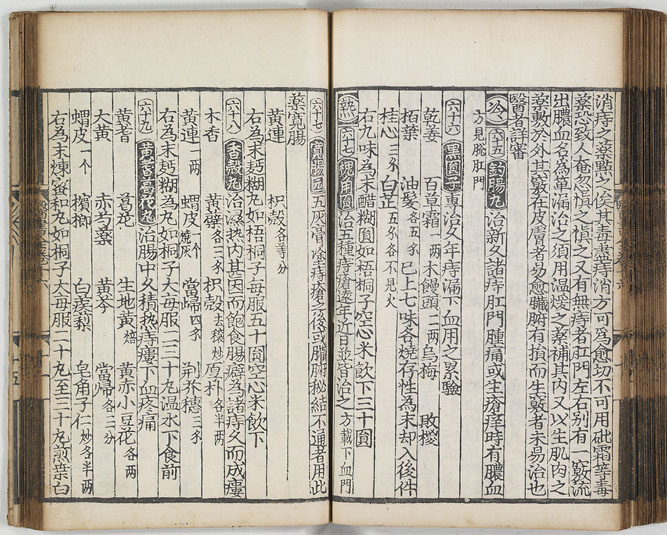 消痔之藥惡之俟其毒甚痔消方可為愈切不可用砒霜等毒
藥恐致人奄忽慎之慎之又有無痔者肛門左右別有一竅流
出膿血名為單漏治之須用溫煖之藥補其內又以生肌內之
藥敷於外其竅在皮膚者易愈臟腑有損而生竅者未易治也
醫者詳審
冷 六五 釣腸丸 治新久諸痔肛門腫痛或生瘡痒時有膿血
方見脫肛門
六十六 黑圓子 專治久年痔漏下血用之累驗
乾姜 百草霜一兩 木饅頭二兩 烏梅 敗椶
栢葉 油髮各五分 已上七味各燒存性為末却入後件
桂心三分 白芷五分各不見火
右九味為末醋糊圓如梧桐子空心米飲下三十圓
熱 六七 槐角圓 治五種痔瘡遠年近日並皆治之方載下血門
六十七 五灰膏 痔瘡之後或臟腑秘結不通者用此
藥寬腸
黃連 枳殼各等分
右為末麫糊丸如梧桐子大每服五十圓空心米飲下
六十八 香殼丸 治濕熱內甚因而飽食腸癖為諸痔久而成瘻
木香 黃蘗各三分 枳殼去穰炒 厚朴各半兩
黃連一兩 蝟皮一个燒灰 當歸四分 荊芥穗三分
右為末麫糊為丸如桐子大每服二三十丸溫水下食前
六十九 治腸中久積熱痔瘻下血疼痛
黃耆 葛花 生地黃焙 黃赤小豆花各兩
大黃 赤芍藥 黃芩 當歸各三分
蝟皮一个 檳榔 白蒺藜 皂角子仁炒各半兩
右為末煉蜜和丸如桐子大每服二十丸至三十丸煎葉白